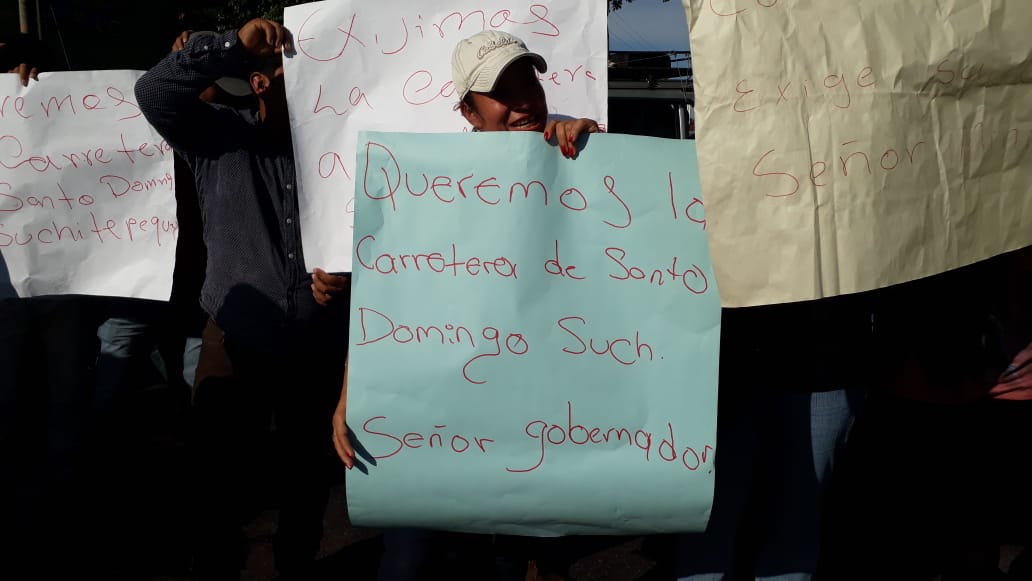 remos
Carretera
Santo Doming
Suchitepequ
Exijimos
La Ca
a
Queremos la
Carretera de Santo
Domingo Such.
Señor gobernador.
Exige su
Señor